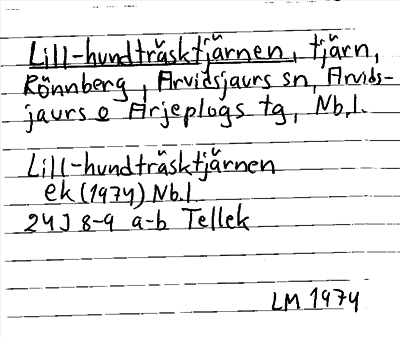 Lill-hundträsktjärnen, tjärn,
Rönnberg, Arvidsjaurs sn, Arvids-
jaurs o Arjeplogs tg, Nb.l.
Lill-hundträsktjärnen
ek (1974) Nb.l
24J 8-9 a-b Tellek
LM 1974